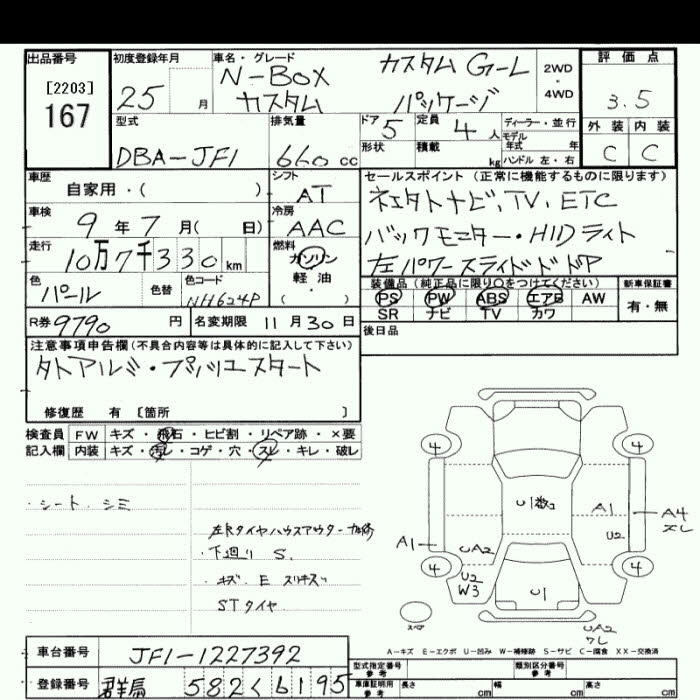 出品番号 [2203] 167
初度登録年月 25 月
車名・グレード N-BOX カスタムG-L 2WD・4WD
カスタム パッケージ
評価点 3.5
外装 内装
C C
型式 DBA-JF1
排気量 660 cc
ドア 5 定員 4 人
形状 積載 kg
ディーラー・並行
モデル年式 年
ハンドル 左・右
車歴 自家用・( )
シフト AT
車検 9年7月( 日)
冷房 AAC
走行 10万7千330 km
燃料 ガソリン 軽油・( )
色 パール 色替
色コード NH624P
セールスポイント (正常に機能するものに限ります)
ナビ、TV、ETC
バックモニター・HIDライト
左パワースライドドア
装備品 (純正品に限り○をつけてください)
PS PW ABS エアB AW
SR ナビ TV カワ
新車保証書
有・無
R券 9790 円 名変期限 11月30日
後日品
注意事項申告欄(不具合内容等は具体的に記入して下さい)
アルミ・プッシュスタート
修復歴 有 [箇所 ]
検査員 FW キズ・飛石・ヒビ割・リペア跡・×要
記入欄 内装 キズ・汚レ・コゲ・穴・スレ・キレ・破レ
・シート シミ
左R タイヤハウスアウター
・下廻り S.
・キズ E スリキズ
STタイヤ
4 4
U1数コ A1 A4
U2
A1 UA2
4 4
U2
W3 U1
スペア
UA2
A-キズ E-エクボ U-凹み W-補修跡 S-サビ C-腐食 XX-交換済
車台番号 JF1-1227392
登録番号 群馬 582く6195
型式指定番号 参考 類別区分番号 参考
車庫証明用 参考 長さ cm 幅 cm 高さ cm